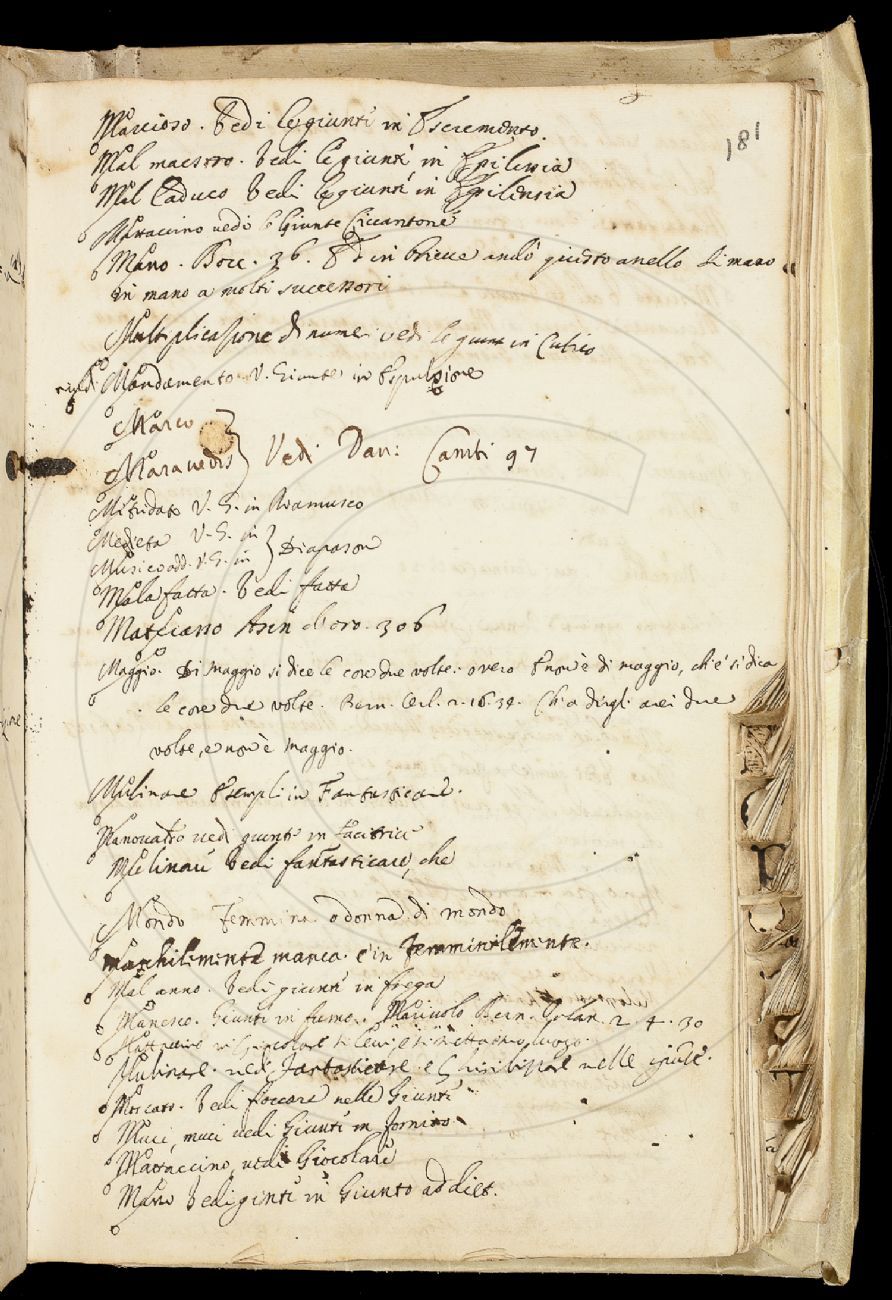 181
Marcioso. Vedi le giunti in Escremento.
Mal maestro. Vedi le giunti in Epilensia
Mal Caduco Vedi le giunti in Epilensia
Mattaccino uedi le Giunte Ciccantone
Mano. Bocc. 36. Ed in brieue andò questo anello di mano
in mano a molti successori
Multiplicasione di numeri vedi le giunte in Cubico
Mandamento V. Giunte in Espulsione
Marco
Marauedis } Vedi Dau: Cambi 97
Mitridato V. G. in Ramusco
Medieta V. G. in
Musico add. V. G. in } Diapason
Mala fatta. Vedi fatta
Mateiasso Asin d'oro. 306
Maggio. Di Maggio si dice le cose due volte. overo E non è di maggio, che si dica
le cose due volte. Bern. Orl. 2. 16. 34. Ch'a dirgli arei due
volte, e non è Maggio.
Mulinare Esempli in Fantasticare.
Manouatro uedi giunte in
Mulinare Vedi fantasticare, che
Mondo Femmina o donna di mondo
Maschilemente manca. è in Femminilemente.
Mal anno. Vedi giunti in frega
Manesco. Giunti in fume. Mariuolo Bern. Orlan. 2. 4. 30
Mattaccino in Giocolare si leui, e si metta luogo.
Mulinare. uedi Fantasticare. e Ghiribizzare nelle giunte.
Moscato. Vedi fioccare nelle Giunti
Muci, muci uedi Giunti in Fornito
Mattaccino, uedi Giocolare
Mano Vedi giunti in Giunto addiet.